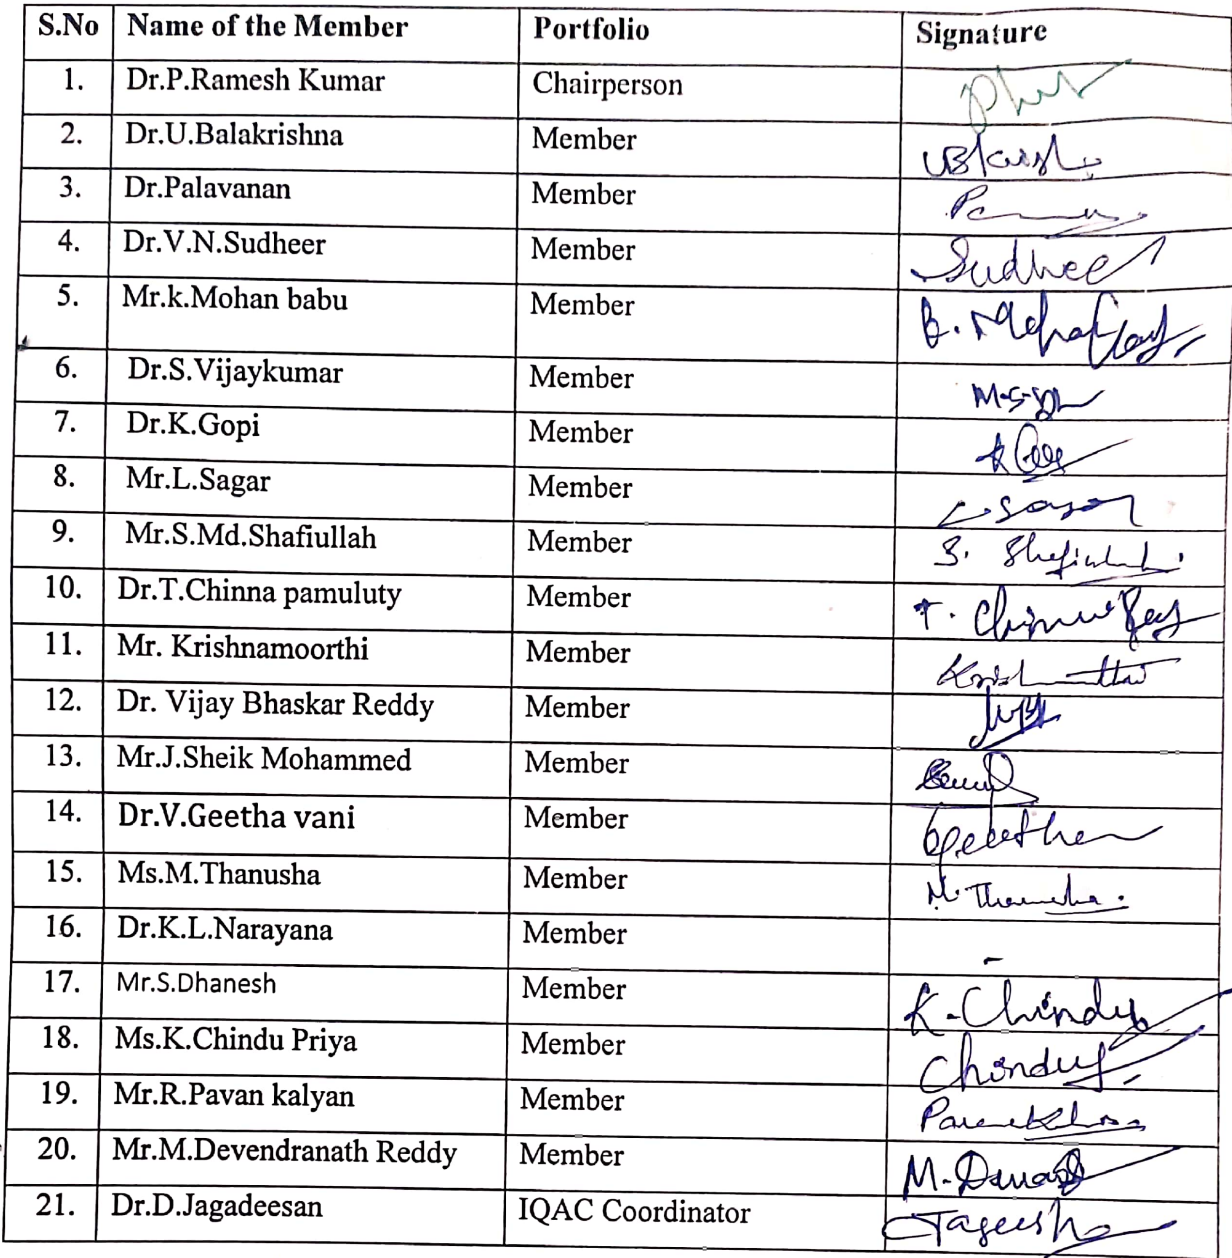 S.No Name of the Member Portfolio Signature
1. Dr.P.Ramesh Kumar Chairperson
2. Dr.U.Balakrishna Member
3. Dr.Palavanan Member
4. Dr.V.N.Sudheer Member Sudheer
5. Mr.k.Mohan babu Member
6. Dr.S.Vijaykumar Member
7. Dr.K.Gopi Member
8. Mr.L.Sagar Member L Sagar
9. Mr.S.Md.Shafiullah Member
10. Dr.T.Chinna pamuluty Member
11. Mr. Krishnamoorthi Member
12. Dr. Vijay Bhaskar Reddy Member
13. Mr.J.Sheik Mohammed Member
14. Dr.V.Geetha vani Member
15. Ms.M.Thanusha Member M. Thanusha.
16. Dr.K.L.Narayana Member -
17. Mr.S.Dhanesh Member K. Chindu
18. Ms.K.Chindu Priya Member
19. Mr.R.Pavan kalyan Member
20. Mr.M.Devendranath Reddy Member
21. Dr.D.Jagadeesan IQAC Coordinator